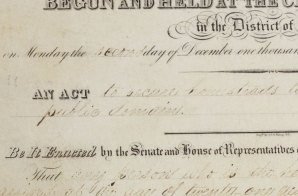 BEGUN AND HELD AT THE C
in the District of
on Monday the second day of December one thousand
AN ACT to secure homesteads to
public domain.
Be It Enacted by the Senate and House of Representatives o
That any person who is the he